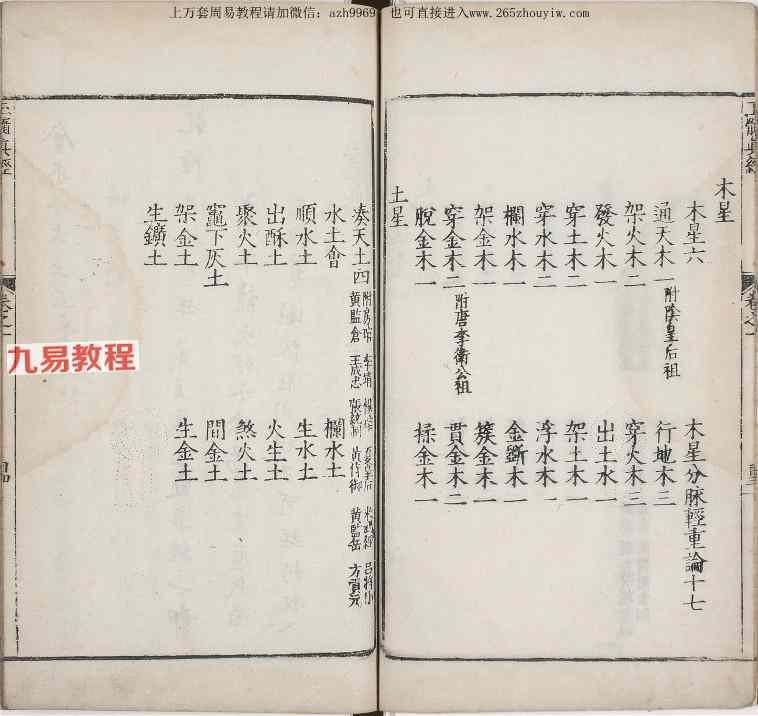 上万套周易教程请加微信：azh9969 也可直接进入www.265zhouyiw.com
木星
木星六
木星分脉輕重論十七
通天木一 附陰皇后祖
行地木三
架火木二
穿火木三
發火木一
出土水一
穿土木二
架土木一
穿水木二
浮水木一
欄水木一
金斷木一
架金木一
簇金木一
穿金木二 附唐李衛公祖
貫金木二
脫金木一
揉金木一
土星
湊天土四
黃監倉
王成忠
黃侍御
黃監岳
水土會
欄水土
順水土
生水土
出酥土
火生土
聚火土
煞火土
竈下灰土
間金土
架金土
生金土
生鑛土
卷之一
九易教程